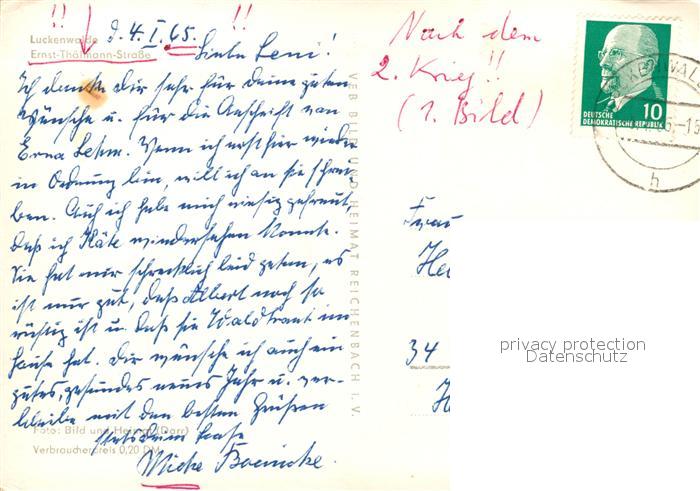 !! !!
Luckenwalde
Ernst-Thälmann-Straße
d. 4.I.65.
Liebe Leni!
Ich danke Dir sehr für Deine guten
Wünsche u. für die Anschrift von
Erna Lehm. Wenn ich erst hier wieder
in Ordnung bin, will ich an sie schrei-
ben. Auch ich habe mich riesig gefreut,
daß ich Käte wiedersehen konnte.
Sie hat mir schrecklich leid getan, es
ist nur gut, daß Albert noch so
rüstig ist u. daß sie Waldtraut im
Hause hat. Dir wünsche ich auch ein
gutes, gesundes neues Jahr u. ver-
bleibe mit den besten Grüßen
stets Deine
Foto: Bild und Heimat (Darr)
Verbraucherpreis 0,20 DM
VEB BILD UND HEIMAT REICHENBACH I. V.
Nach dem
2. Krieg!!
(1. Bild)
10
DEUTSCHE
DEMOKRATISCHE REPUBLIK
h
Frau
34
privacy protection
Datenschutz